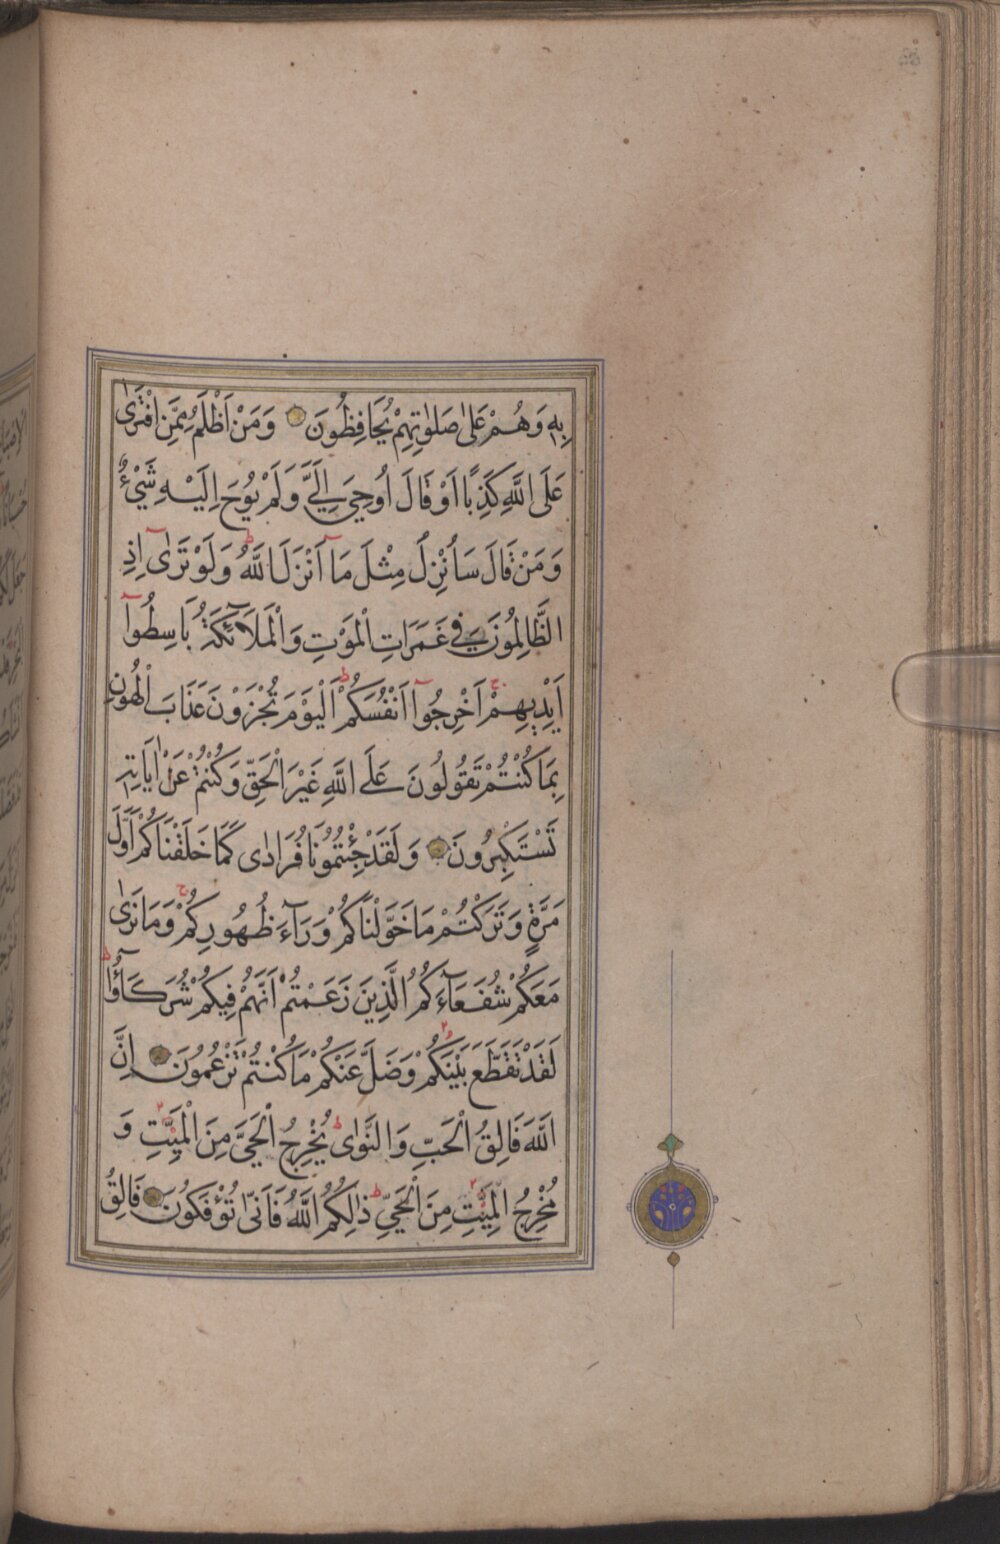 بِهِ وَهُمْ عَلٰى صَلٰوتِهِمْ يُحَافِظُونَ وَمَنْ اَظْلَمُ مِمَّنِ افْتَرٰى
عَلَى اللّٰهِ كَذِبًا اَوْ قَالَ اُوحِيَ اِلَيَّ وَلَمْ يُوحَ اِلَيْهِ شَيْءٌ
وَمَنْ قَالَ سَاُنْزِلُ مِثْلَ مَآ اَنْزَلَ اللّٰهُ وَلَوْ تَرٰٓى اِذِ
الظَّالِمُونَ فِي غَمَرَاتِ الْمَوْتِ وَالْمَلَآئِكَةُ بَاسِطُوٓا
اَيْدِيهِمْ اَخْرِجُوٓا اَنْفُسَكُمْ اَلْيَوْمَ تُجْزَوْنَ عَذَابَ الْهُونِ
بِمَا كُنْتُمْ تَقُولُونَ عَلَى اللّٰهِ غَيْرَ الْحَقِّ وَكُنْتُمْ عَنْ اٰيَاتِهِ
تَسْتَكْبِرُونَ وَلَقَدْ جِئْتُمُونَا فُرَادٰى كَمَا خَلَقْنَاكُمْ اَوَّلَ
مَرَّةٍ وَتَرَكْتُمْ مَا خَوَّلْنَاكُمْ وَرَآءَ ظُهُورِكُمْ وَمَا نَرٰى
مَعَكُمْ شُفَعَآءَكُمُ الَّذِينَ زَعَمْتُمْ اَنَّهُمْ فِيكُمْ شُرَكَآؤُا
لَقَدْ تَقَطَّعَ بَيْنَكُمْ وَضَلَّ عَنْكُمْ مَا كُنْتُمْ تَزْعُمُونَ اِنَّ
اللّٰهَ فَالِقُ الْحَبِّ وَالنَّوٰى يُخْرِجُ الْحَيَّ مِنَ الْمَيِّتِ وَ
مُخْرِجُ الْمَيِّتِ مِنَ الْحَيِّ ذٰلِكُمُ اللّٰهُ فَاَنّٰى تُؤْفَكُونَ فَالِقُ